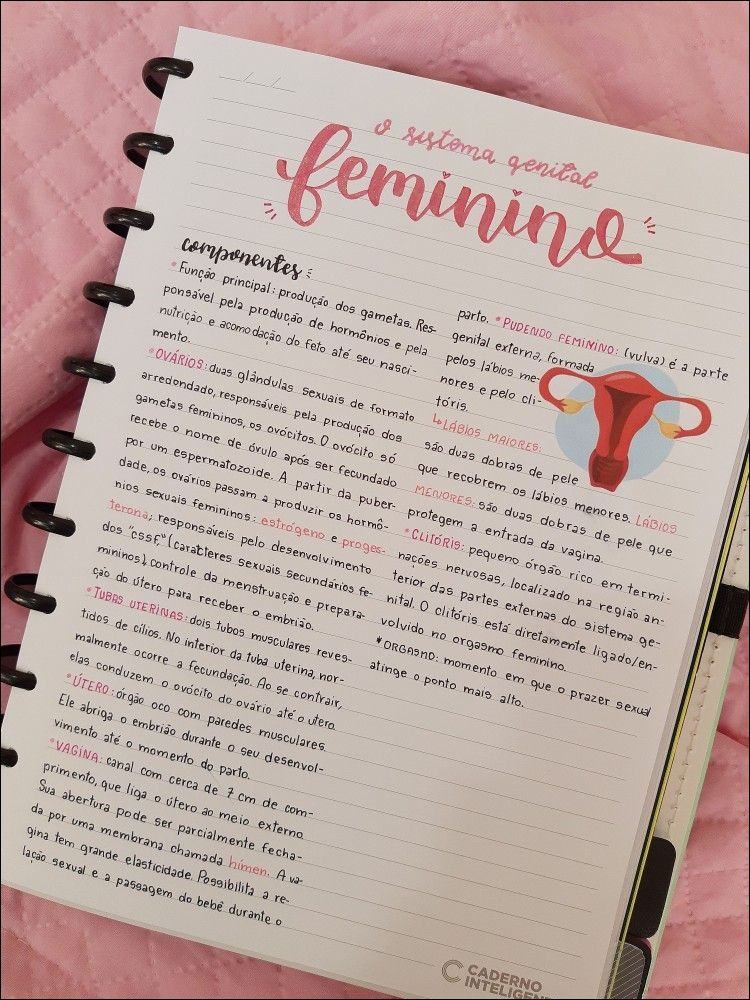 o sistema genital
feminino
componentes:
*Função principal: produção dos gametas. Res-
ponsável pela produção de hormônios e pela
nutrição e acomodação do feto até seu nasci-
mento.
*OVÁRIOS: duas glândulas sexuais de formato
arredondado, responsáveis pela produção dos
gametas femininos, os ovócitos. O ovócito só
recebe o nome de óvulo após ser fecundado
por um espermatozoide. A partir da puber-
dade, os ovários passam a produzir os hormô-
nios sexuais femininos: estrógeno e proges-
terona, responsáveis pelo desenvolvimento
dos "CSSF," (caracteres sexuais secundários fe-
mininos), controle da menstruação e prepara-
ção do útero para receber o embrião.
*TUBAS UTERINAS: dois tubos musculares reves-
tidos de cílios. No interior da tuba uterina, nor-
malmente ocorre a fecundação. Ao se contrair,
elas conduzem o ovócito do ovário até o útero.
*ÚTERO: órgão oco com paredes musculares.
Ele abriga o embrião durante o seu desenvol-
vimento até o momento do parto.
*VAGINA: canal com cerca de 7 cm de com-
primento, que liga o útero ao meio externo.
Sua abertura pode ser parcialmente fecha-
da por uma membrana chamada hímen. A va-
gina tem grande elasticidade. Possibilita a re-
lação sexual e a passagem do bebê durante o
parto. *PUDENDO FEMININO: (vulva) é a parte
genital externa, formada
pelos lábios me-
nores e pelo cli-
tóris.
↳ LÁBIOS MAIORES:
são duas dobras de pele
que recobrem os lábios menores. LÁBIOS
MENORES: são duas dobras de pele que
protegem a entrada da vagina.
*CLITÓRIS: pequeno órgão rico em termi-
nações nervosas, localizado na região an-
terior das partes externas do sistema ge-
nital. O clitóris está diretamente ligado/en-
volvido no orgasmo feminino.
*ORGASMO: momento em que o prazer sexual
atinge o ponto mais alto.
CADERNO
INTELIGEN